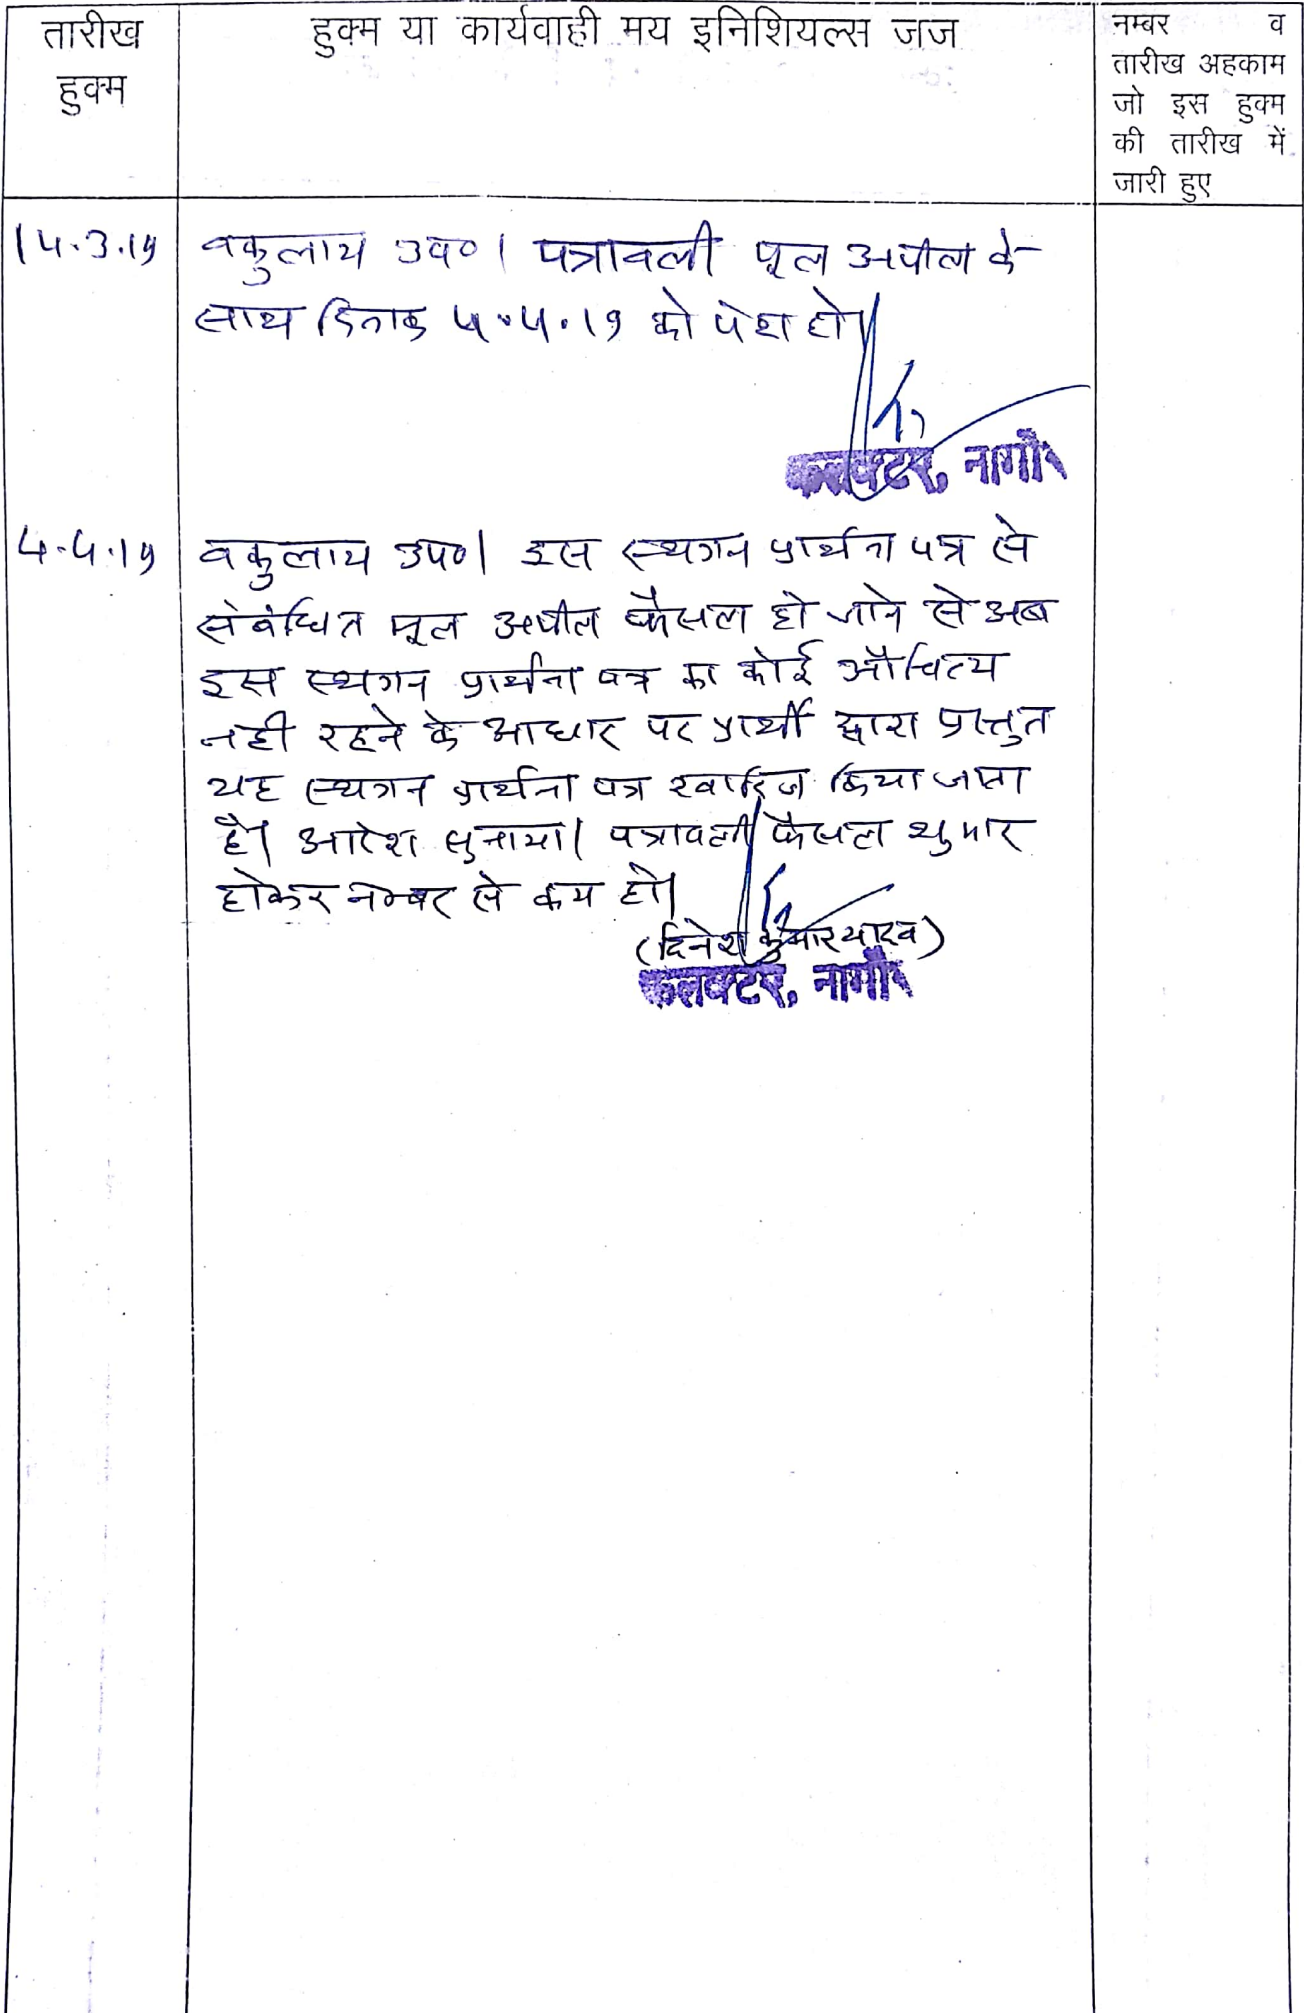 तारीख
हुक्म
हुक्म या कार्यवाही मय इनिशियल्स जज
नम्बर व
तारीख अहकाम
जो इस हुक्म
की तारीख में
जारी हुए
14.3.19 वकुलाय उप०। पत्रावली मूल अपील के
साथ दिनांक 4.4.19 को पेश हो।
कलक्टर, नागौर
4.4.19 वकुलाय उप०। इस स्थगन प्रार्थना पत्र से
संबंधित मूल अपील फैसला हो जाने से अब
इस स्थगन प्रार्थना पत्र का कोई औचित्य
नही रहने के आधार पर प्रार्थी द्वारा प्रस्तुत
यह स्थगन प्रार्थना पत्र खारिज किया जाता
है। आदेश सुनाया। पत्रावली फैसला शुमार
होकर नम्बर से कम हो।
(दिनेश कुमार यादव)
कलक्टर, नागौर